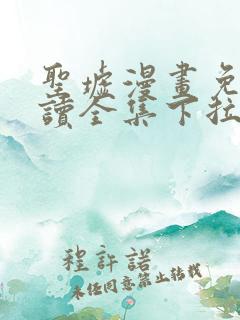 聖墟漫畫免
讀全集下拉
程許諾
未經同意禁止轉載